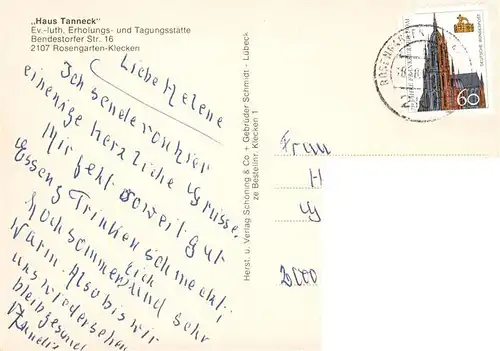 „Haus Tanneck"
Ev.-luth. Erholungs- und Tagungsstätte
Bendestorfer Str. 16
2107 Rosengarten-Klecken
Liebe Helene
Ich sende von hier
einenige herzliche Grüsse.
Mir geht soweit gut
Essen & Trinken schmeckt;
hochsommerlich und sehr
Warm. Also bis wir
uns wiedersehen
bleib gesund
Herst. u. Verlag Schöning & Co + Gebrüder Schmidt - Lübeck
ze Bestellnr. Klecken 1
Frau
H
2000
DEUTSCHE BUNDESPOST
60
ROSENGARTEN